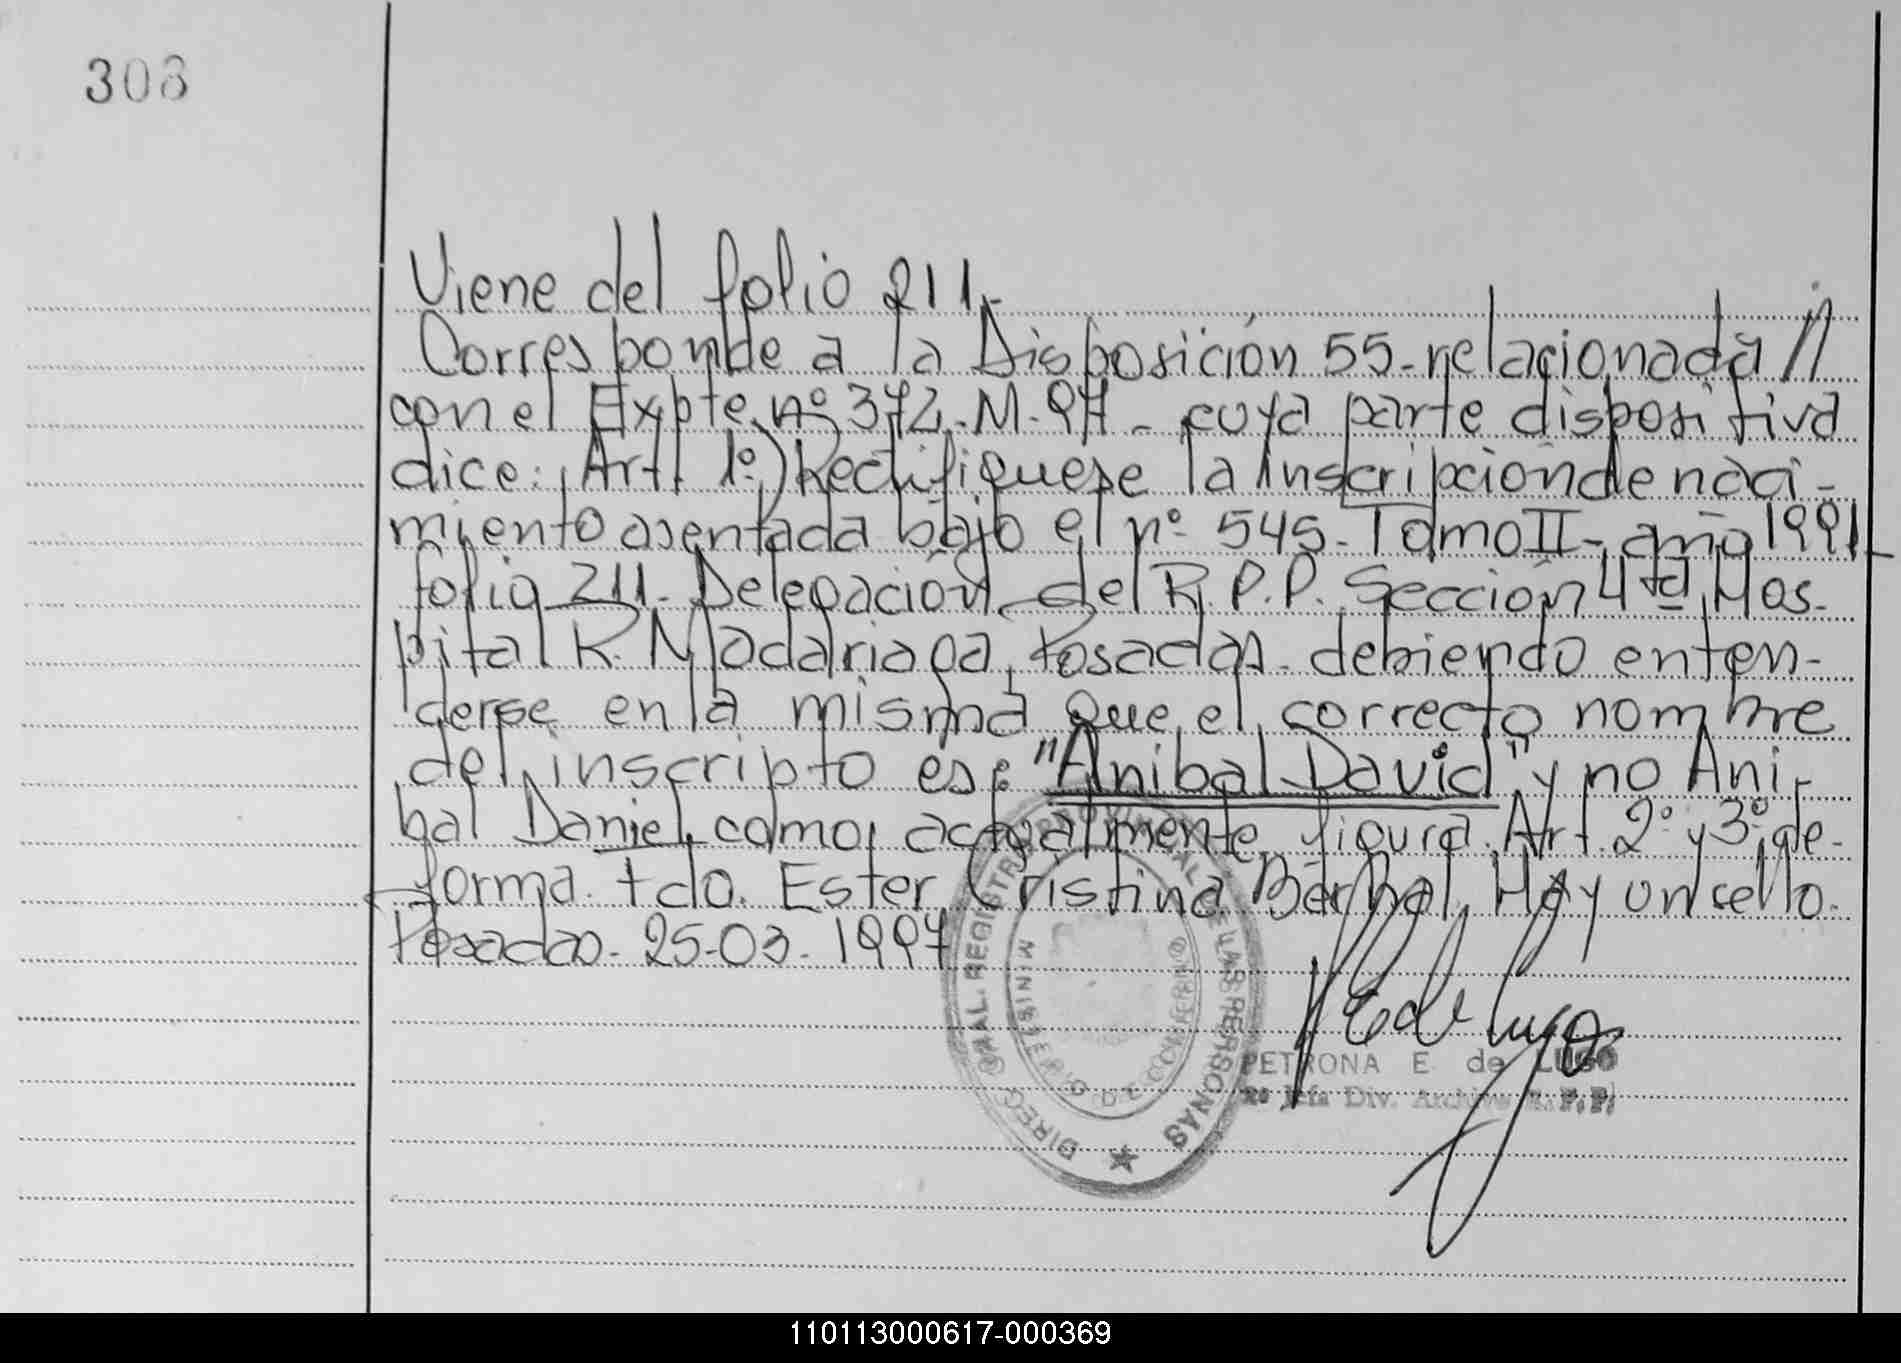 308
Viene del folio 211.-
Corresponde a la Disposición 55-relacionada //
con el Expte. nº 372-M-97- cuya parte dispositiva
dice: Art. 1º) Rectifiquese la inscripcion de naci-
miento asentada bajo el nº 545-Tomo II-, año 1991-
folio 211-Delegación del R.P.P. Sección 4ta, Hos-
pital R. Madariaga, Posadas-debiendo enten-
derse en la misma que el correcto nombre
del inscripto es: "Anibal David" y no Ani-
bal Daniel como actualmente figura. Art. 2º y 3º de-
forma. Fdo. Ester Cristina Barbal, Hay un sello.
Posadas-25-03-1997
DIREC. GRAL. REGISTRO PROVINCIAL DE LAS PERSONAS
MINISTERIO DE GOBIERNO
PETRONA E. de LUGO
2º Jefa Div. Archivo R.P.P.
110113000617-000369